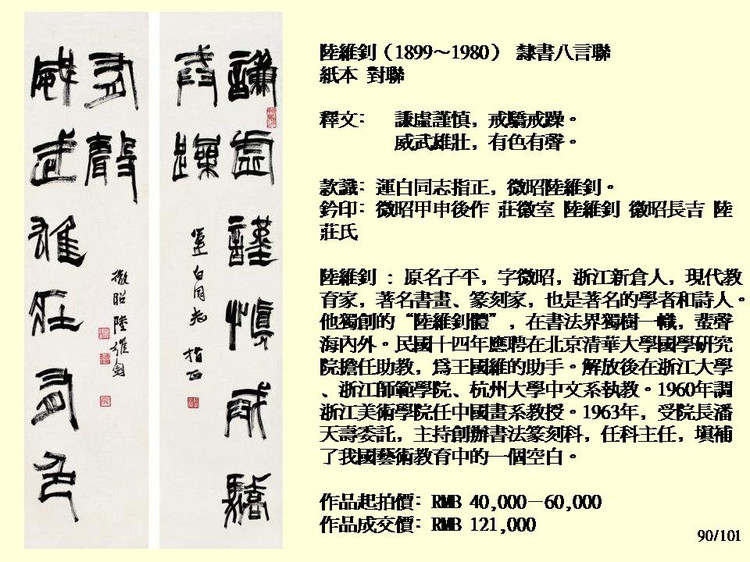 謙虛謹慎戒驕
戒躁
運白同志
指正
有聲
威武雄壯有色
微昭陸維釗
陸維釗（1899～1980） 隸書八言聯
紙本 對聯
釋文： 謙虛謹慎，戒驕戒躁。
威武雄壯，有色有聲。
款識：運白同志指正，微昭陸維釗。
鈐印：微昭甲申後作 莊徽室 陸維釗 微昭長吉 陸
莊氏
陸維釗 ：原名子平，字微昭，浙江新倉人，現代教
育家，著名書畫、篆刻家，也是著名的學者和詩人。
他獨創的“陸維釗體”，在書法界獨樹一幟，蜚聲
海內外。民國十四年應聘在北京清華大學國學研究
院擔任助教，爲王國維的助手。解放後在浙江大學
、浙江師範學院、杭州大學中文系執教。1960年調
浙江美術學院任中國畫系教授。1963年，受院長潘
天壽委託，主持創辦書法篆刻科，任科主任，填補
了我國藝術教育中的一個空白。
作品起拍價：RMB 40,000－60,000
作品成交價：RMB 121,000
90/101